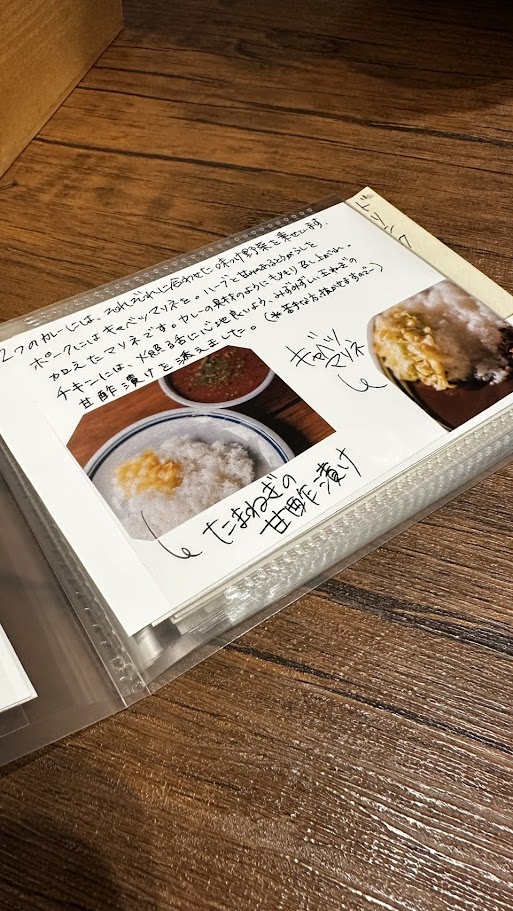 2つのカレーには、それぞれに合わせた味つけ野菜を乗せています。
ポークにはキャベツマリネを。ハーブと甘みのあるとうがらしを
加えたマリネです。カレーの具材のようにもりもり召し上がれ。
チキンには、火照る舌に心地良いよう、みずみずしい玉ねぎの
甘酢漬けを添えました。(※苦手な方は抜けますのでー)
キャベツ
マリネ
たまねぎの
甘酢漬け
ドリンク